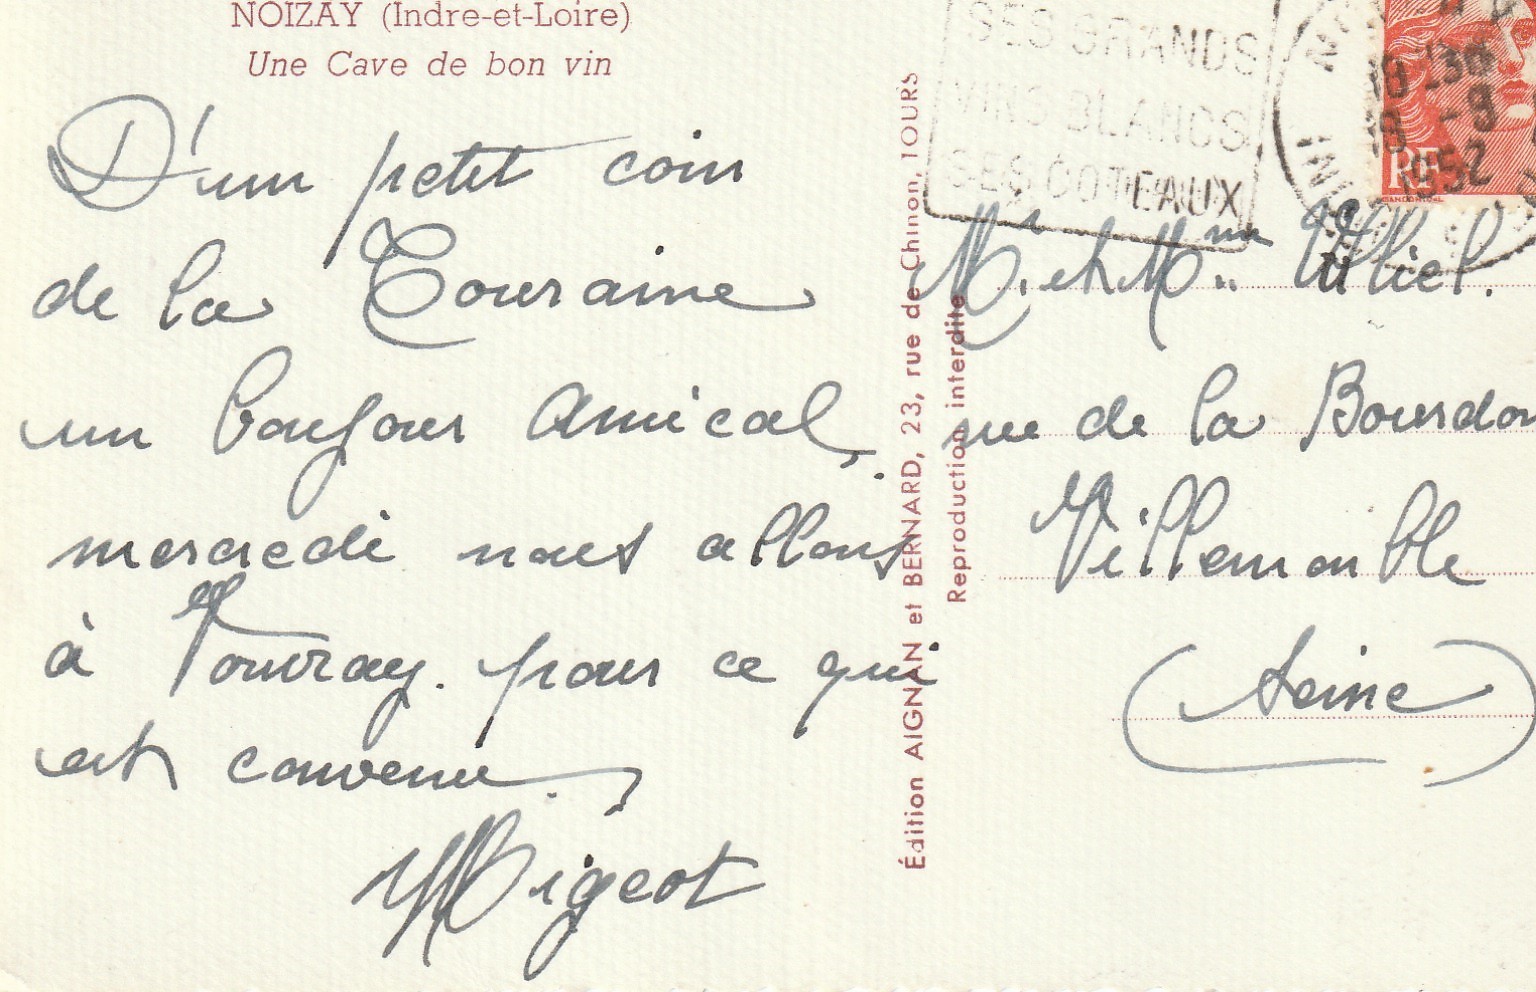 NOIZAY (Indre-et-Loire)
Une Cave de bon vin
D'un petit coin
de la Touraine
un bonjour amical,
mercredi nous allons
à Vouvray pour ce qui
est convenu,
Migeot
Édition AIGNAN et BERNARD, 23, rue de Chinon, TOURS
Reproduction interdite
SES GRANDS
VINS BLANCS
SES COTEAUX
18 30
19 -9
1952
RF
M. et Mme
rue de la Bourdon
Villemomble
(Seine)